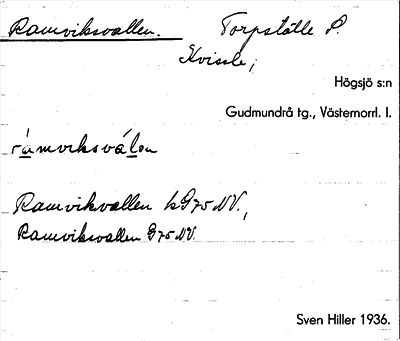 Ramviksvallen. Torpställe P.
Kvissle,
Högsjö s:n
Gudmundrå tg., Västernorrl. l.
rámviksválen
Ramvikvallen G75 NV.,
Ramviksvallen G75 NV.
Sven Hiller 1936.